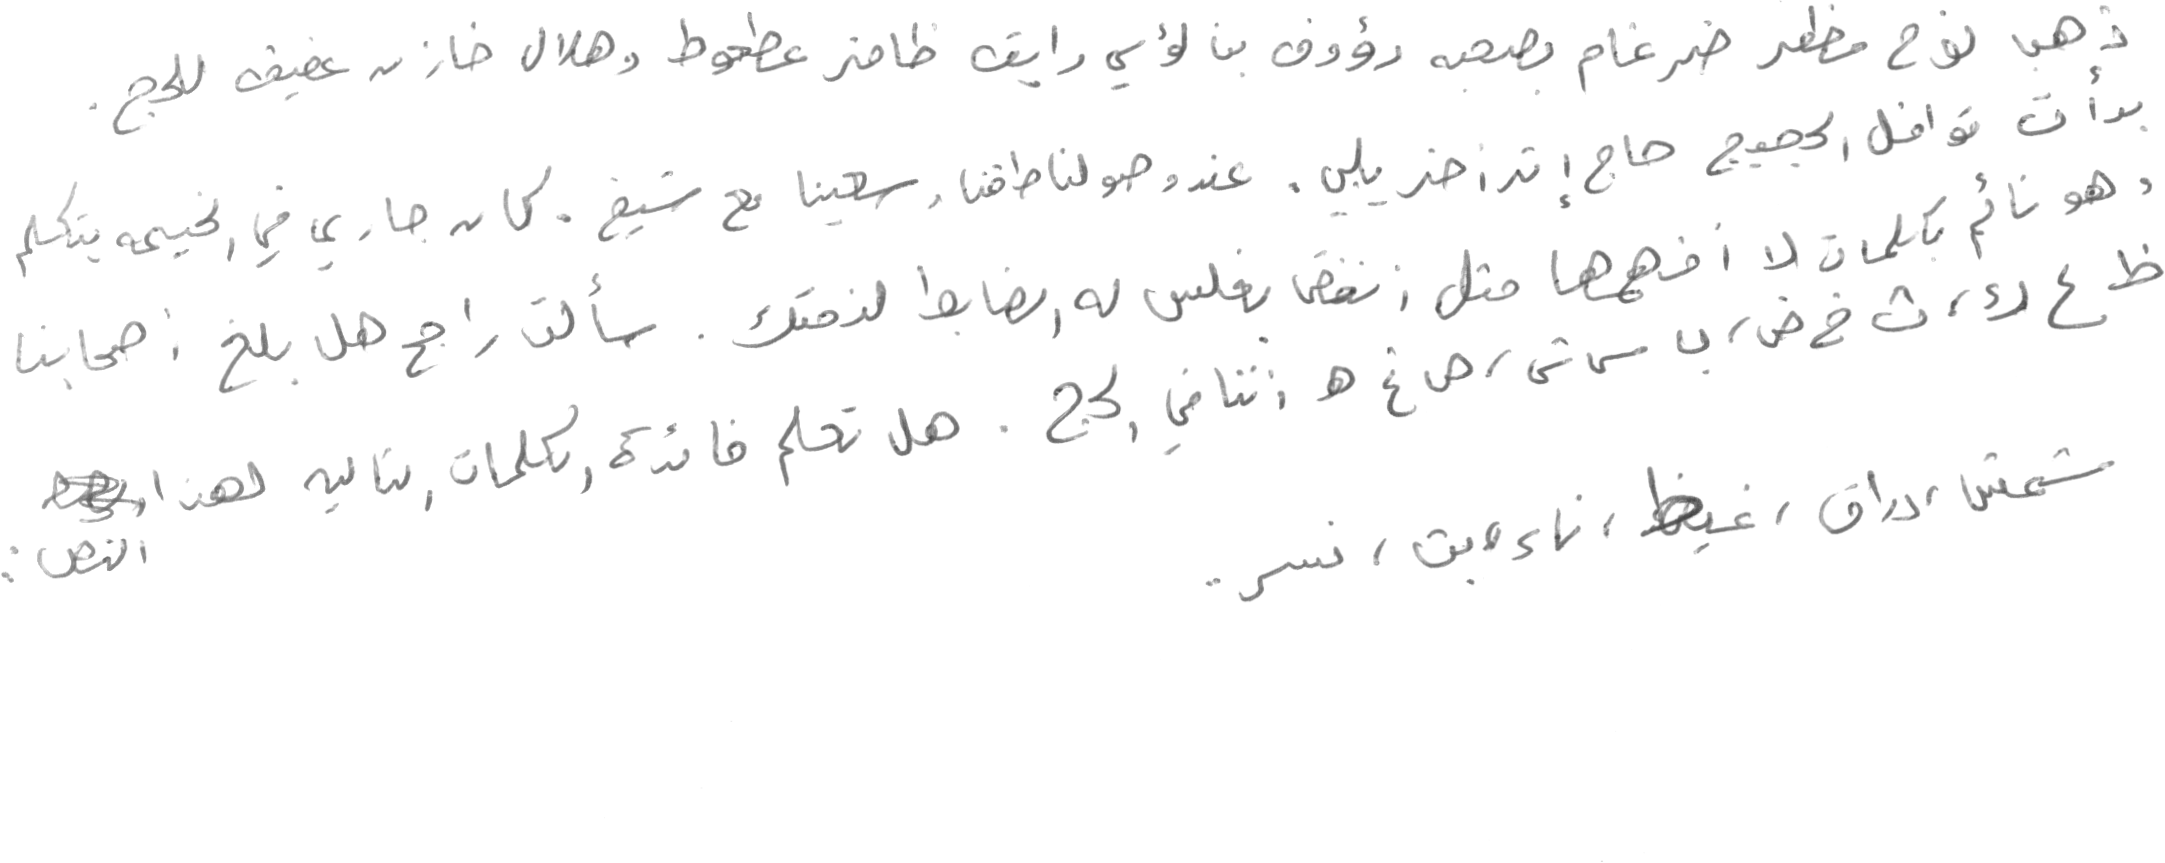 ذهب نوح مظفر ضرغام بصحبه رؤوف بن لؤي رايق ظافر عطعوط وهلال خازن عفيف للحج .
بدأت قوافل الحجيج حاج إثر أخر يلبي . عند وصولنا طفنا وسعينا مع شيخ . كان جاري في الخيمه يتكلم
وهو نائم بكلمات لا أفهمها مثل انغض يغلس له الضابط لذقتك . سألت راجح هل بلغ أصحابنا
ظ ع لاء ، ث خ ض ، ب س ش ، ص غ ه اننا في الحج . هل تعلم فائدة الكلمات التاليه لهذا
النص :
شمش ، دراق ، غيظ ، ناء ، بت ، نسر .